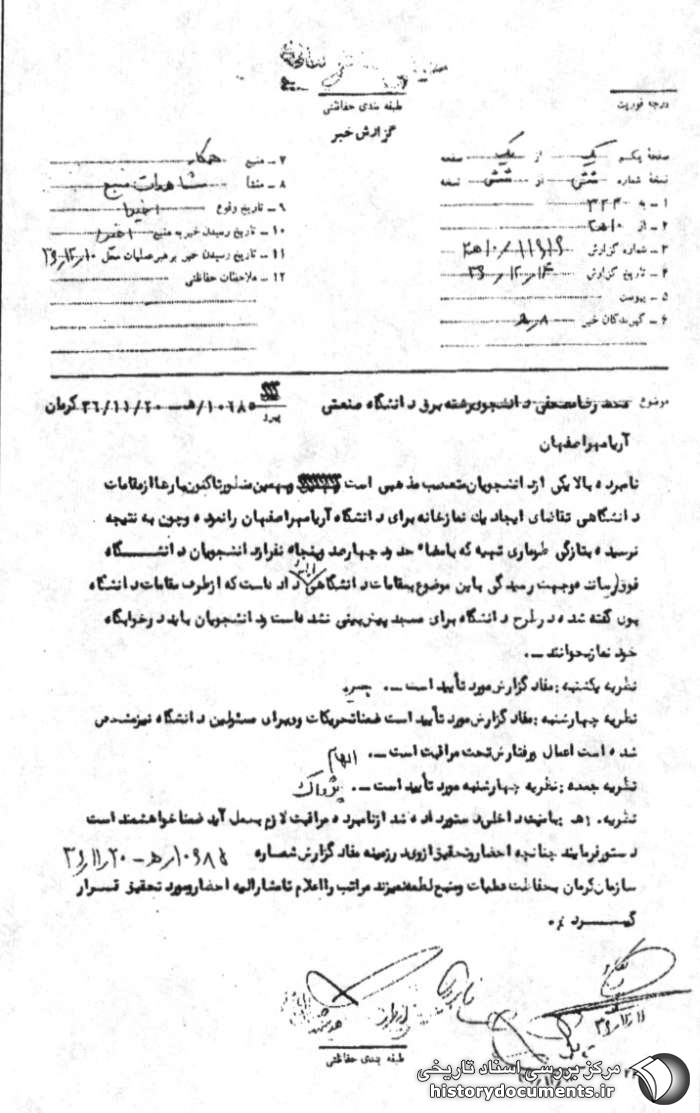 طبقه بندی حفاظتی
درجه فوریت
گزارش خبر
صفحه یکم یک از یک صفحه
نسخه شماره شش از شش نسخه
۱ ـ به ۳۴۰
۲ ـ از ۱۰ه‍
۳ ـ شماره گزارش
۴ ـ تاریخ گزارش
۵ ـ پیوست
۶ ـ گیرندگان خبر
۷ ـ منبع همکار
۸ ـ منشأ مشاهدات منبع
۹ ـ تاریخ وقوع اخیرا
۱۰ ـ تاریخ رسیدن خبر به منبع اخیرا
۱۱ ـ تاریخ رسیدن خبر برهبر عملیات محل
۱۲ ـ ملاحظات حفاظتی
موضوع محمد رضا مصحفی دانشجوی رشته برق دانشگاه صنعتی
آریامهر اصفهان
پیرو ۱۰۶۸۵/ه‍ ـ ۳۶/۱۱/۲۰ کرمان
نامبرده بالا یکی از دانشجویان متعصب مذهبی است و بهمین منظور تاکنون بارها از مقامات
دانشگاهی تقاضای ایجاد یک نمازخانه برای دانشگاه آریامهر اصفهان را نموده و چون به نتیجه
نرسیده بتازگی طوماری تهیه که بامضاء حدود چهارصد و پنجاه نفر از دانشجویان دانشگاه
فوق رسانده وجهت رسیدگی باین موضوع بمقامات دانشگاهی ارائه داده است که از طرف مقامات دانشگاه
بوی گفته شده در طرح دانشگاه برای مسجد پیش بینی نشده است و دانشجویان باید در خوابگاه
خود نماز بخوانند ـ.
نظریه یکشنبه : مفاد گزارش مورد تأیید است ـ.
نظریه چهارشنبه : مفاد گزارش مورد تأیید است ضمنا تحریکات وی برای مسئولین دانشگاه نیز مشخص
شده است اعمال و رفتارش تحت مراقبت است ـ. الهام
نظریه جمعه : نظریه چهارشنبه مورد تأیید است ـ. پژواک
نظریه . ه‍ : بامنیت داخلی دستور داده شد از نامبرده مراقبت لازم بعمل آید ضمنا خواهشمند است
دستور فرمایند چنانچه احضار و تحقیق از وی در زمینه مفاد گزارش شماره ۱۰۶۸۵/ه‍ ـ ۳۶/۱۱/۲۰
سازمان کرمان بحفاظت عملیات و منبع لطمه نمیزند مراتب را اعلام تا مشارالیه احضار و مورد تحقیق قرار
گیرد .
طبقه بندی حفاظتی
مرکز بررسی اسناد تاریخی
historydocuments.ir